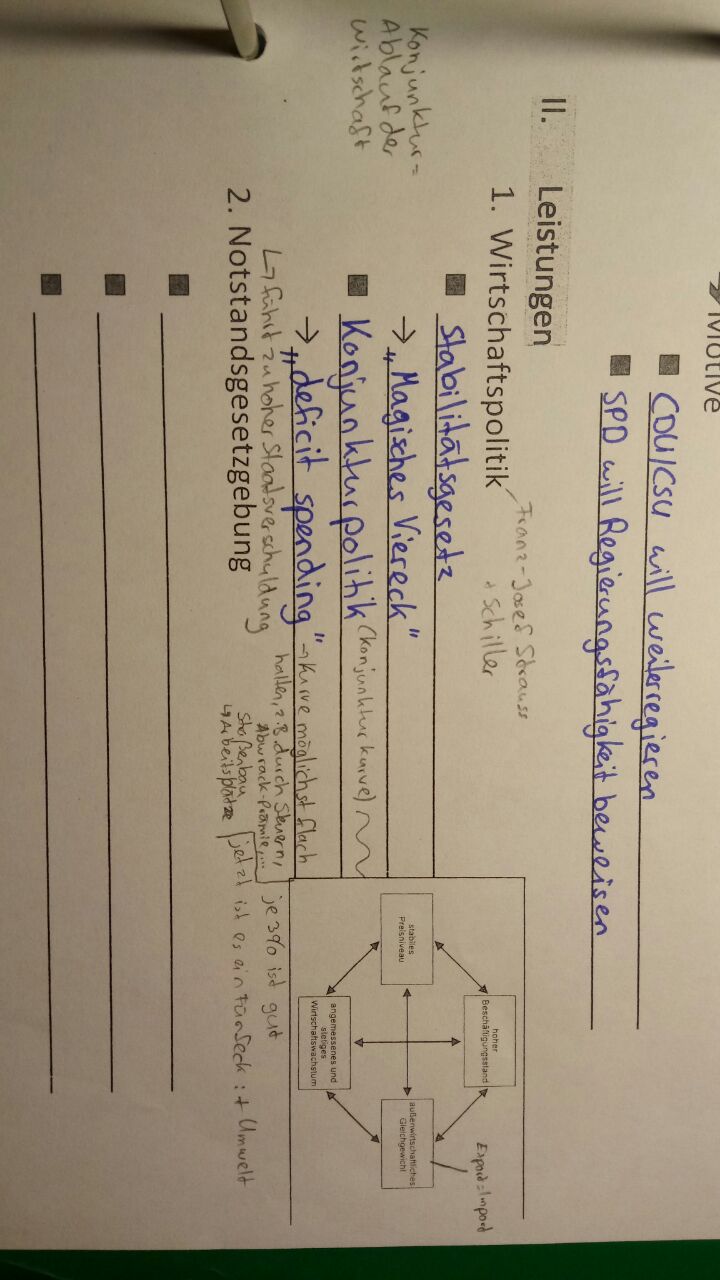 Motive
CDU/CSU will weiterregieren
SPD will Regierungsfähigkeit beweisen
II. Leistungen
1. Wirtschaftspolitik
Franz-Josef Strauss
+ Schiller
Stabilitätsgesetz
→ „Magisches Viereck"
Konjunkturpolitik (Konjunkturkurve)
→ „deficit spending" → Kurve möglichst flach
halten, z.B. durch Steuern,
Abwrack-Prämie,...
Straßenbau
↳ Arbeitsplätze
↳ führt zu hoher Staatsverschuldung
2. Notstandsgesetzgebung
Konjunktur =
Ablauf der
Wirtschaft
hoher
Beschäftigungsstand
Export = Import
stabiles
Preisniveau
außenwirtschaftliches
Gleichgewicht
angemessenes und
stetiges
Wirtschaftswachstum
je 3% ist gut
jetzt ist es ein Fünfeck: + Umwelt